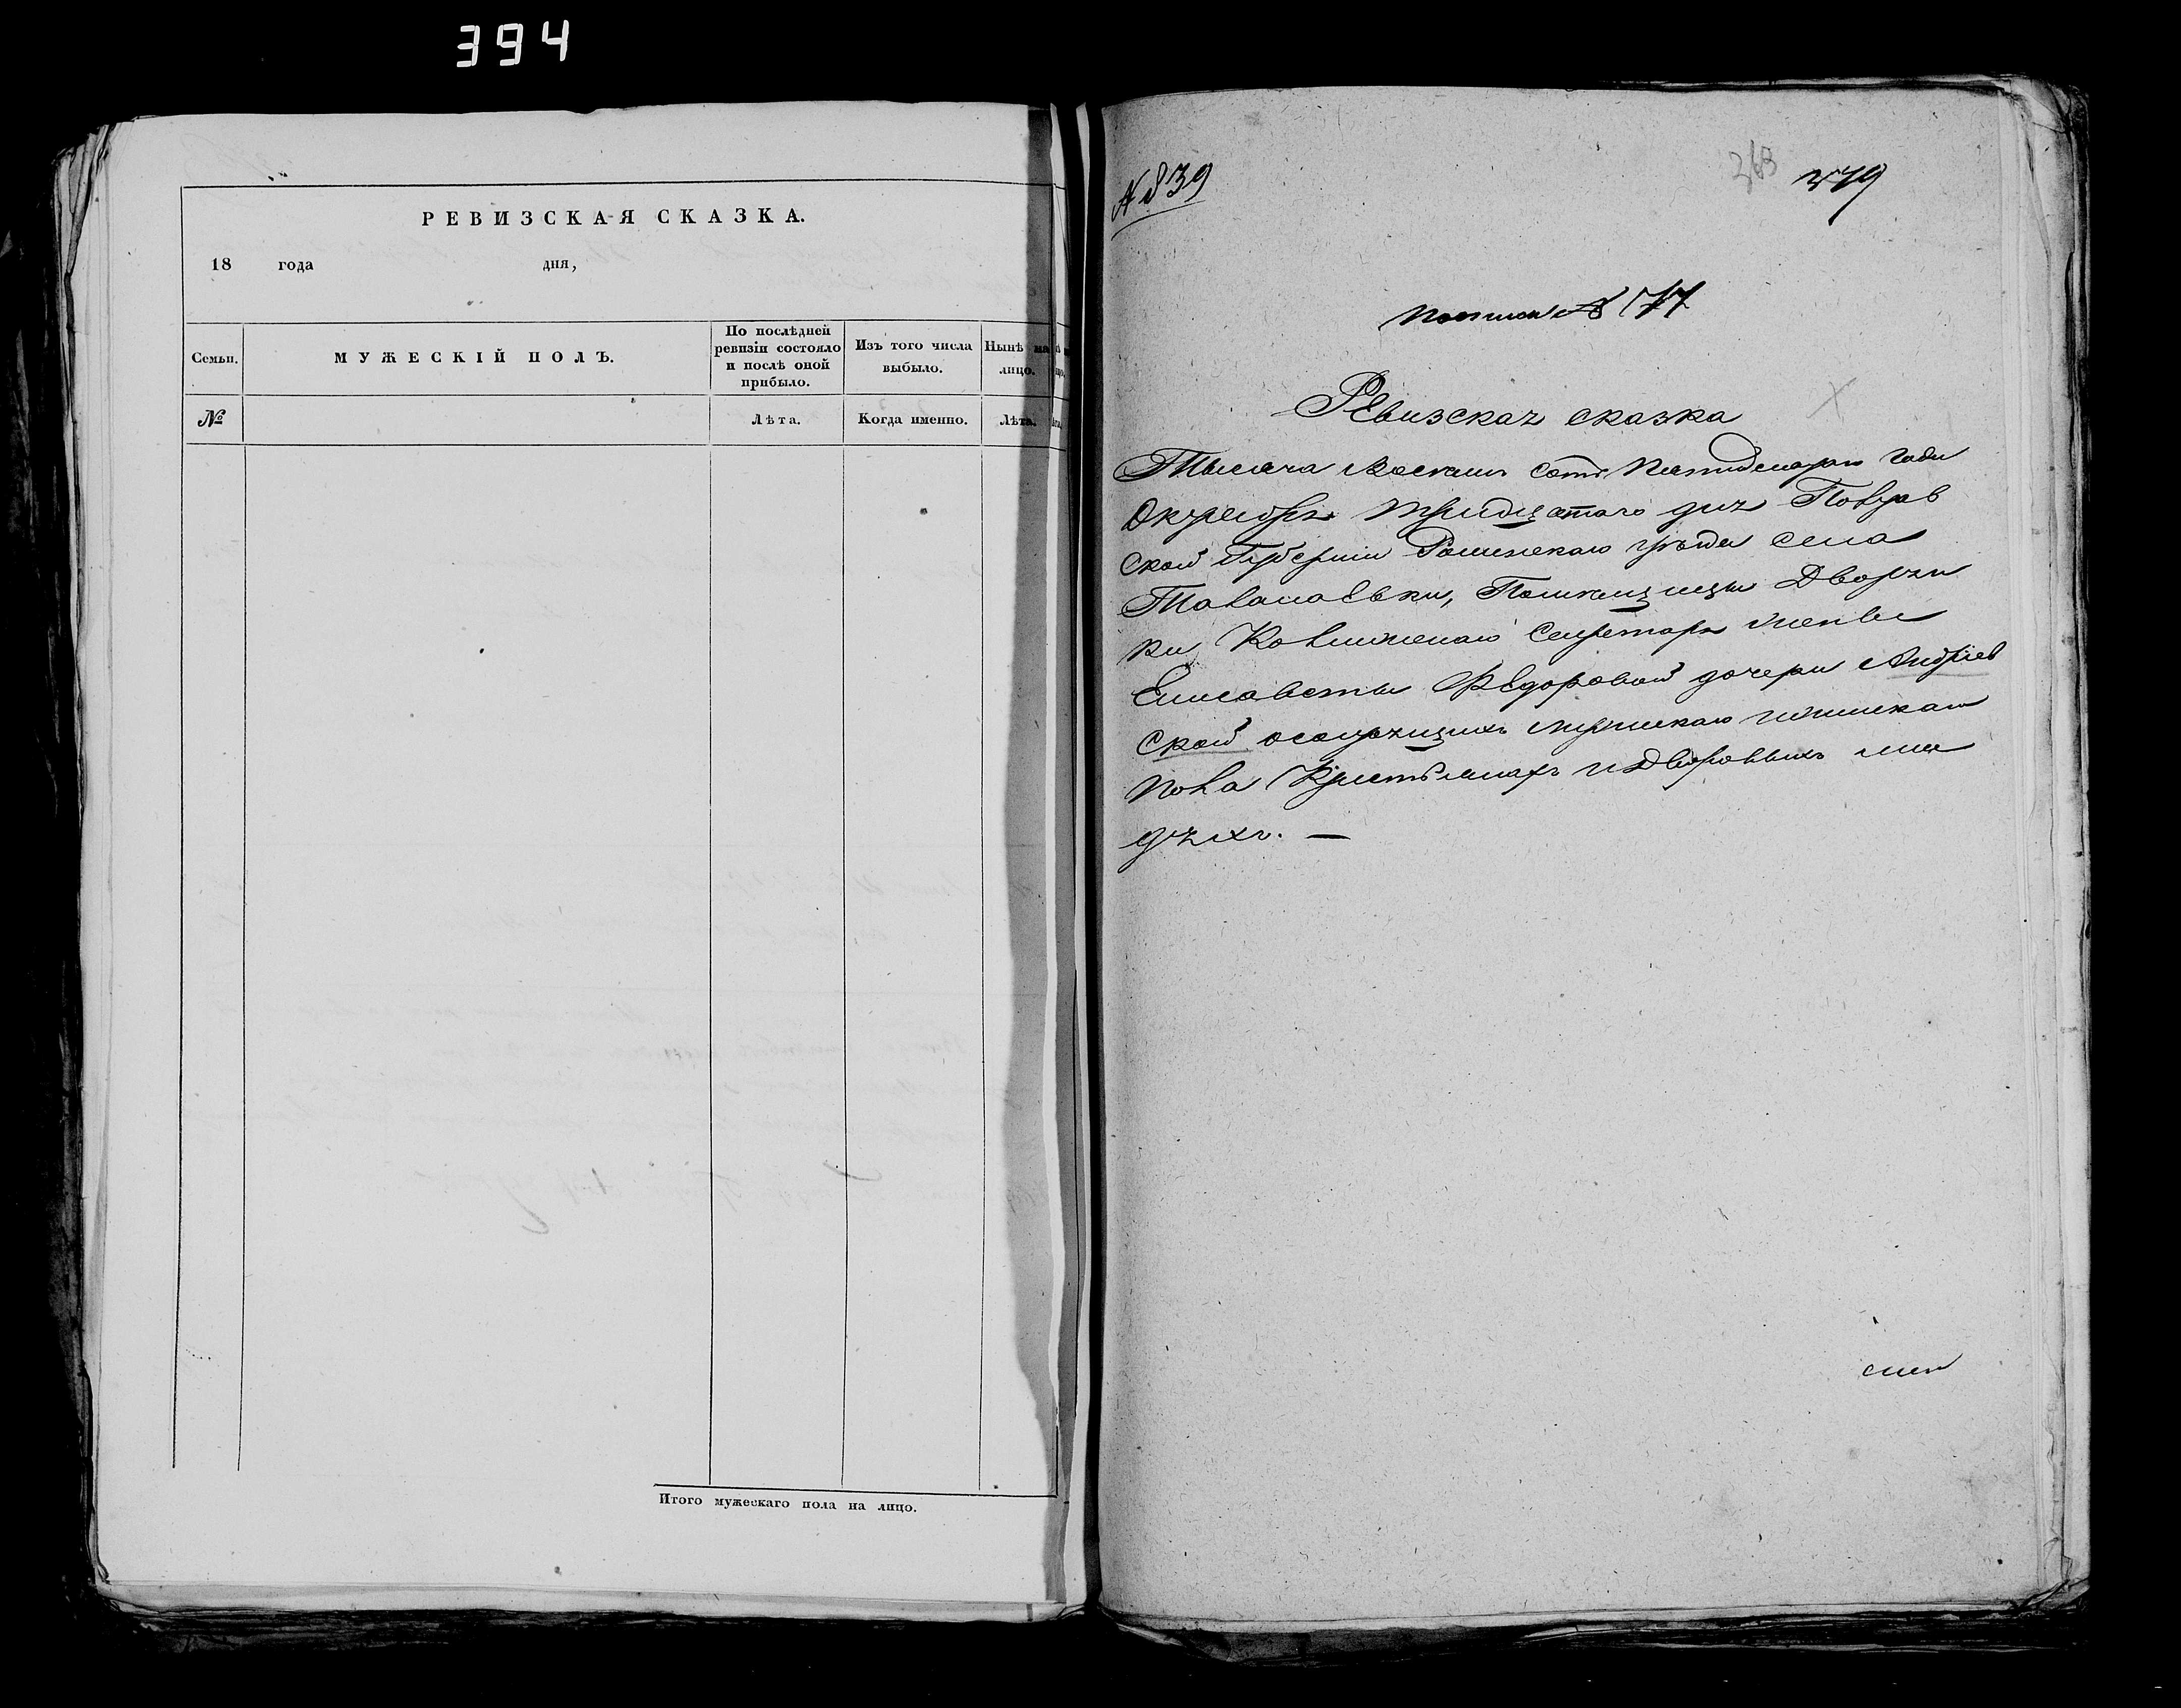 394
РЕВИЗСКАЯ СКАЗКА.
18 года дня,
Семьи.
МУЖЕСКІЙ ПОЛЪ.
По послѣдней
ревизіи состояло
и послѣ оной
прибыло.
Изъ того числа
выбыло.
Нынѣ на
лицо.
№
Лѣта.
Когда именно.
Лѣта.
Итого мужескаго пола на лицо.
№ 839
363
379
№ 77
Ревизская сказка
Тысяча восемь сотъ пятидесятаго года
Октября тридцатаго дня Полтав
ской Губерніи Роменскаго уѣзда села
Помѣщицы Дворян
ки Секретаря жены
Елисаветы Федоровой дочери Андріев
ской о состоящихъ мужескаго и женскаго
пола Крестьянахъ и Дворовыхъ лю
дяхъ. —